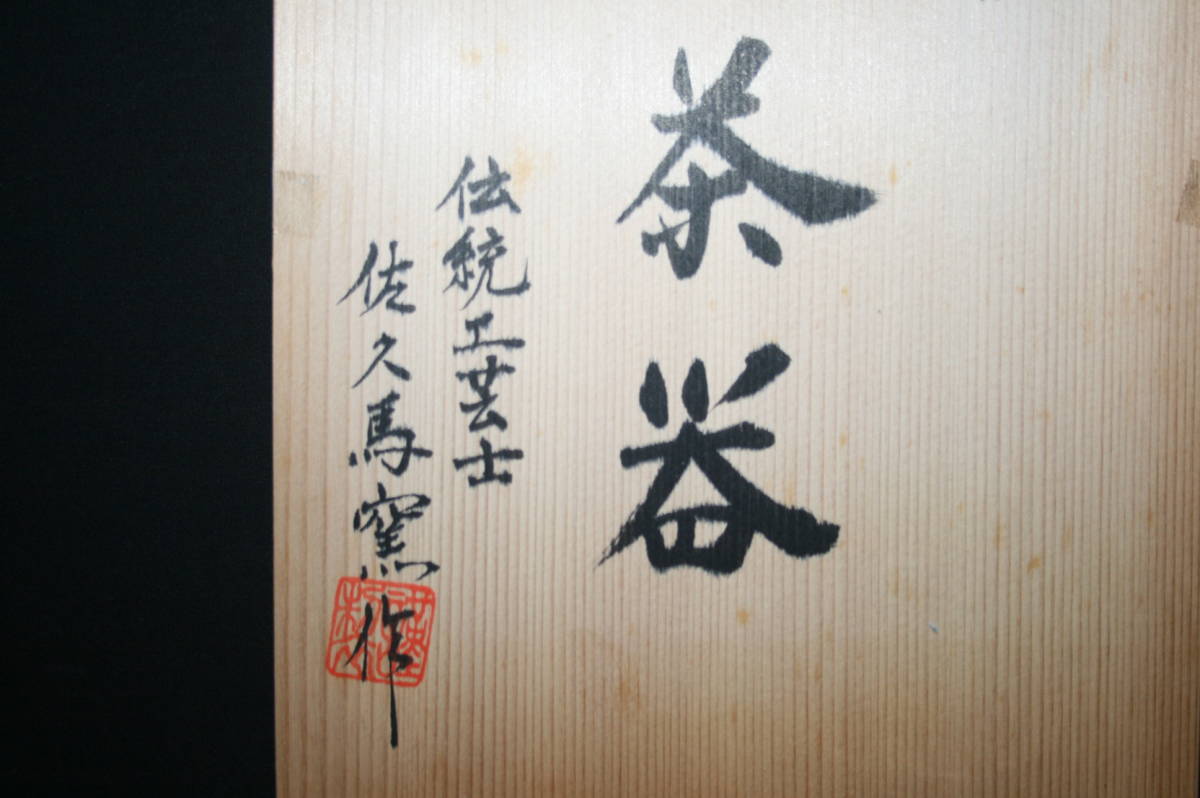 茶器
伝統工芸士
佐久馬窯作